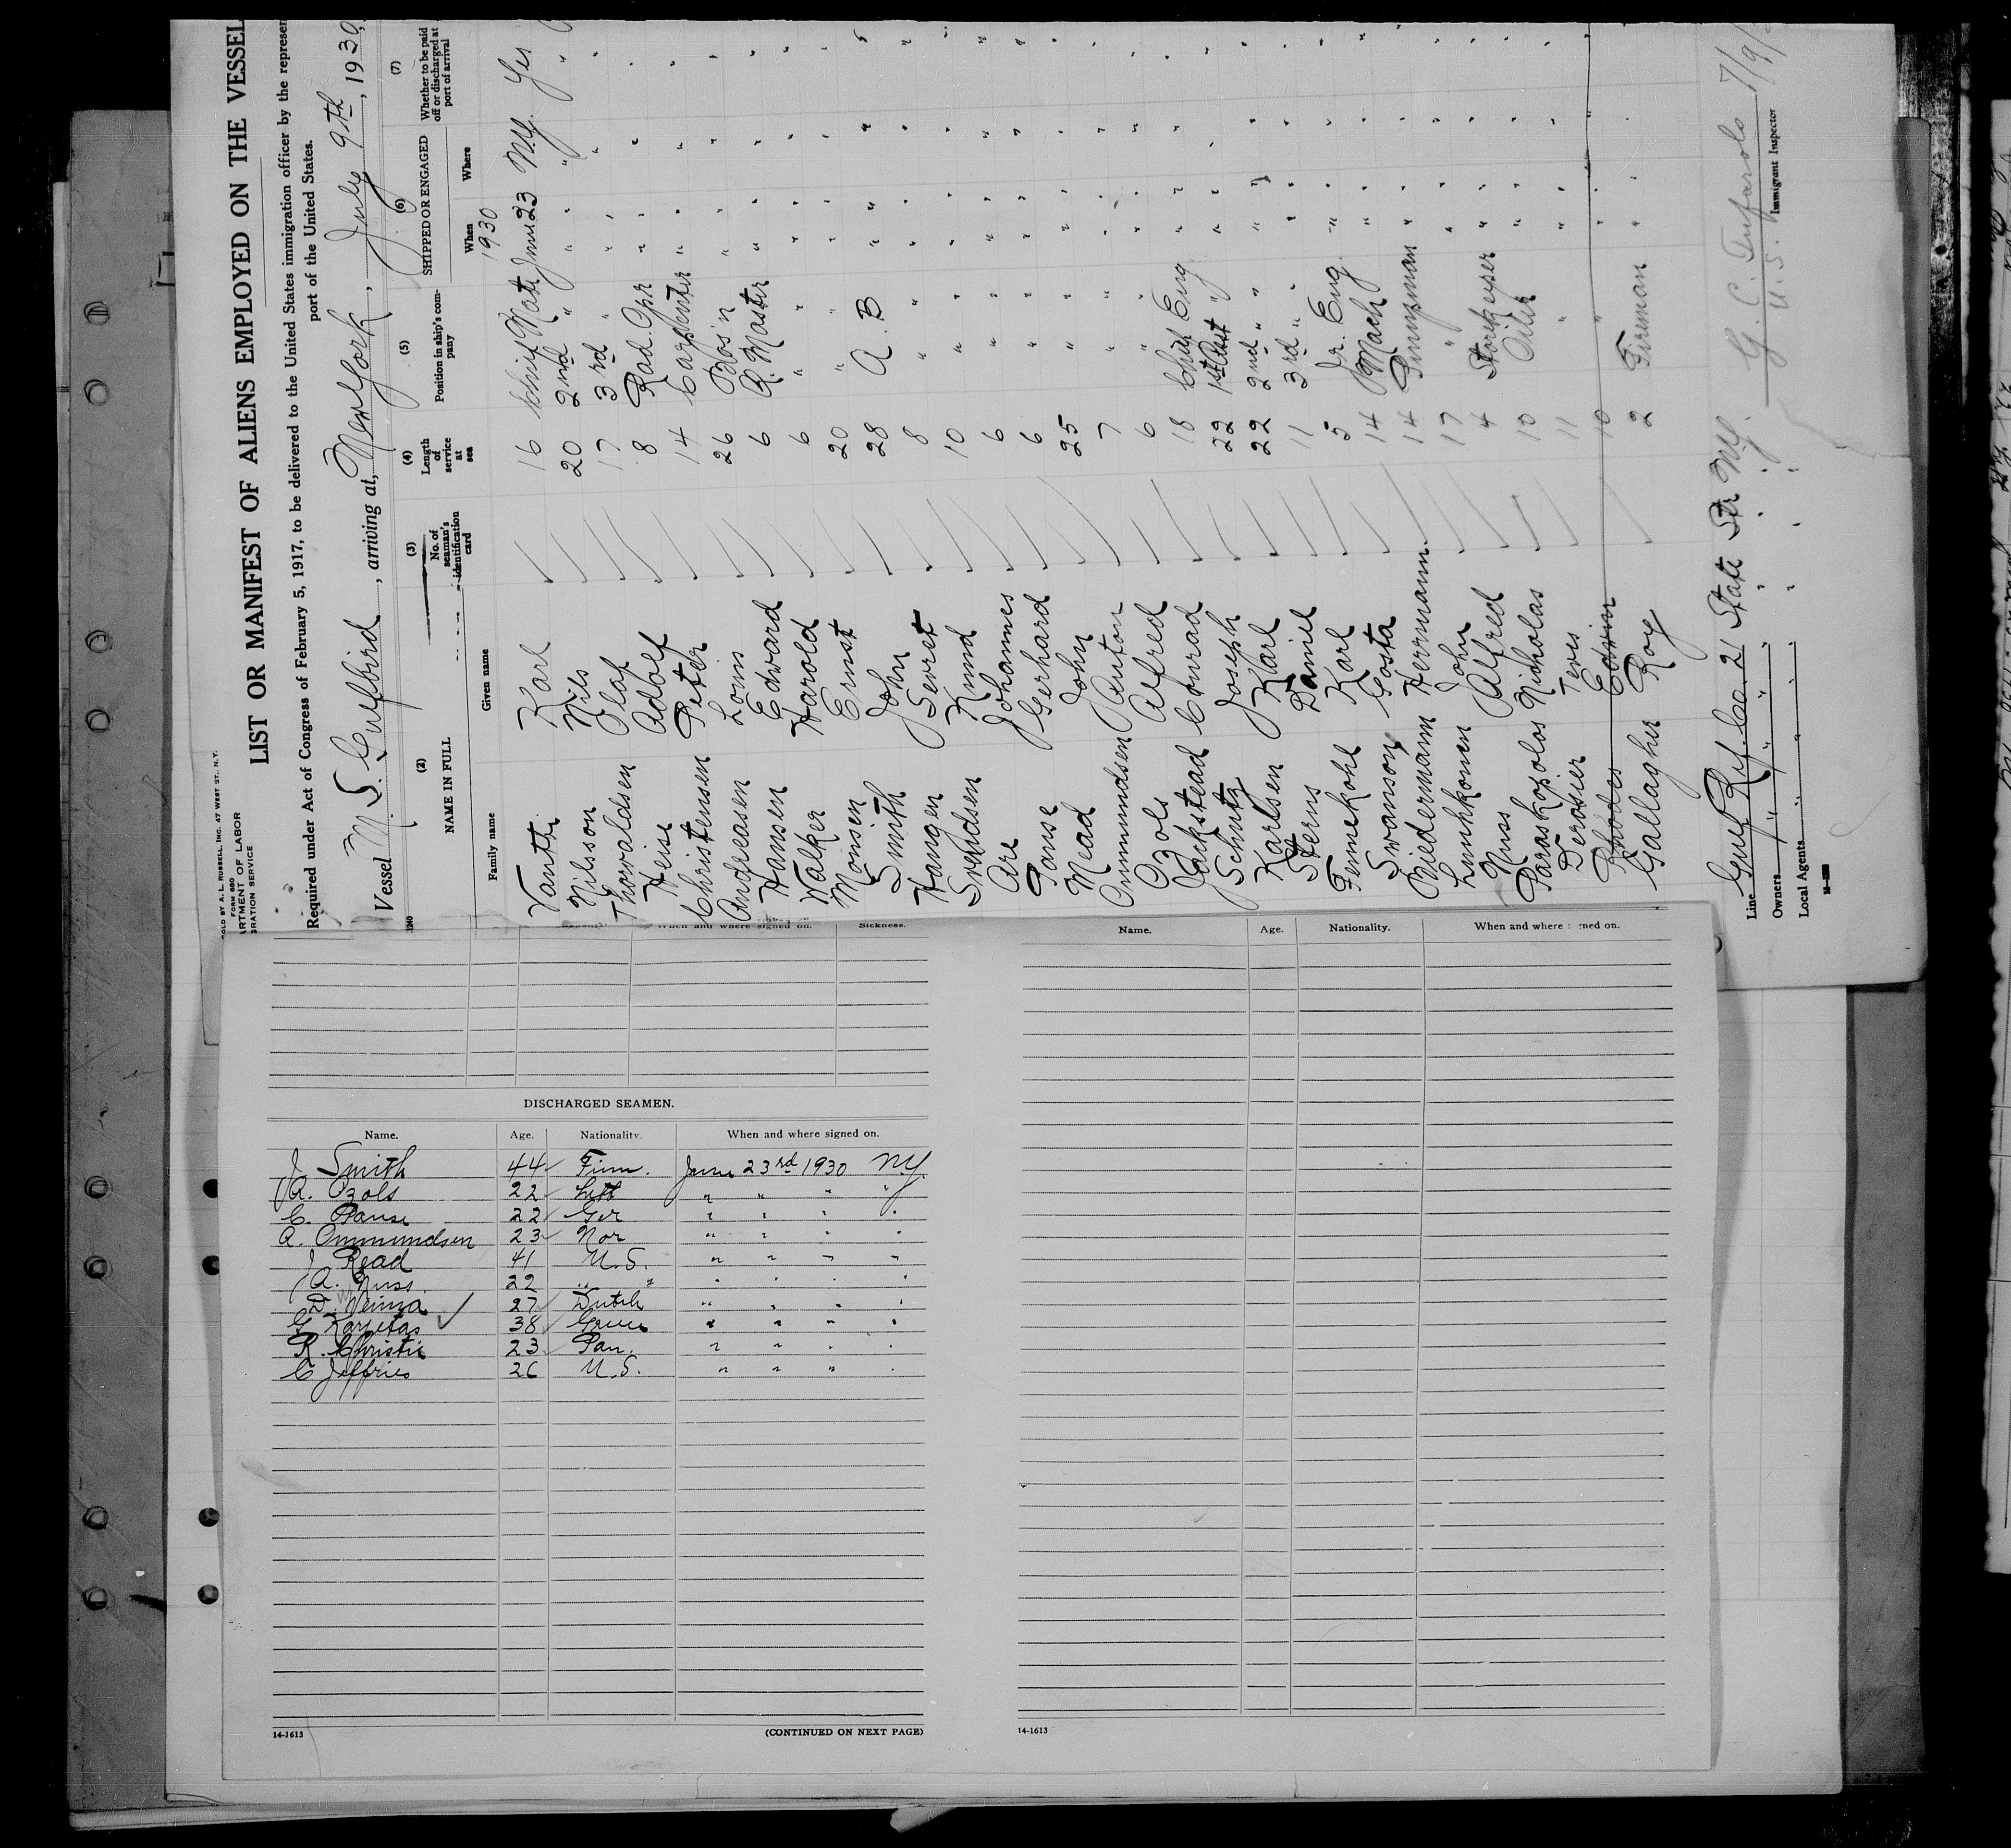 SOLD BY A. L. RUSSELL, INC. 47 WEST ST., N.Y.
FORM 680
ARTMENT OF LABOR
GRATION SERVICE
LIST OR MANIFEST OF ALIENS EMPLOYED ON THE VESSEL
Required under Act of Congress of February 5, 1917, to be delivered to the United States immigration officer by the represen
port of the United States.
Vessel M. S. Gulfbird, arriving at, New York, July 9th, 1930,
(2) (3) (4) (5) (6) (7)
NAME IN FULL No. of seaman's identification card Length of service at sea Position in ship's company SHIPPED OR ENGAGED Whether to be paid off or discharged at port of arrival
Family name Given name When Where
1930
Karl 16 Chief Mate June 23 NY. Yes
Nilsson Nils 20 2nd " " "
Thorvaldsen Olaf 17 3rd " " "
Heise Adolf 8 Rad. Opr " "
Christensen Peter 14 Carpenter " "
Andreasen Louis 26 Bos'n " "
Hansen Edward 6 R. Master " "
Walker Harold 6 " " "
Monsen Ernst 20 " " "
Smith John 28 A. B " "
Haugen Severet 8 " " "
Svendsen Knud 10 " " "
Are Johannes 6 " " "
Panse Gerhard 6 " " "
Mead John 25 " " "
Ommundsen Anton 7 " " "
Ozols Alfred 6 " " "
Jackstead Conrad 18 Chief Eng " "
Schultz Joseph 22 1st Asst " " "
Karlsen Karl 22 2nd " " "
Sterns Daniel 11 3rd " " "
Fennekohl Karl 5 Jr. Eng. " "
Swanson Gosta 14 Mach " "
Biedermann Hermann 14 Pumpman " "
Lunkkonen John 17 " " "
Nuss Alfred 4 Storekeeper " "
Paraskopolos Nicholas 10 Oiler " "
Derosier Teris 11 " " "
Rhodes Edwin 10 " " "
Gallagher Roy 2 Fireman " "
Line Gulf Rfg. Co. 21 State Str NY.
Owners " " " " " "
Local Agents " " " " "
G. C. Tufarolo 7/9/
U. S. Immigrant Inspector
When and where signed on. Sickness.
DISCHARGED SEAMEN.
Name. Age. Nationality. When and where signed on.
J Smith 44 Finn. June 23rd 1930 NY.
A. Ozols 22 Lett " " " "
C. Panse 22 Ger " " " "
A. Ommundsen 23 Nor " " " "
J Read 41 U.S. " " " "
A. Nuss. 22 " " " " " "
D. Venima 27 Dutch " " " "
G Karjetas 38 Greece " " " "
R. Christie 23 Pan. " " " "
C Jeffries 26 U.S. " " " "
14-1613 (CONTINUED ON NEXT PAGE)
Name. Age. Nationality. When and where signed on.
14-1613